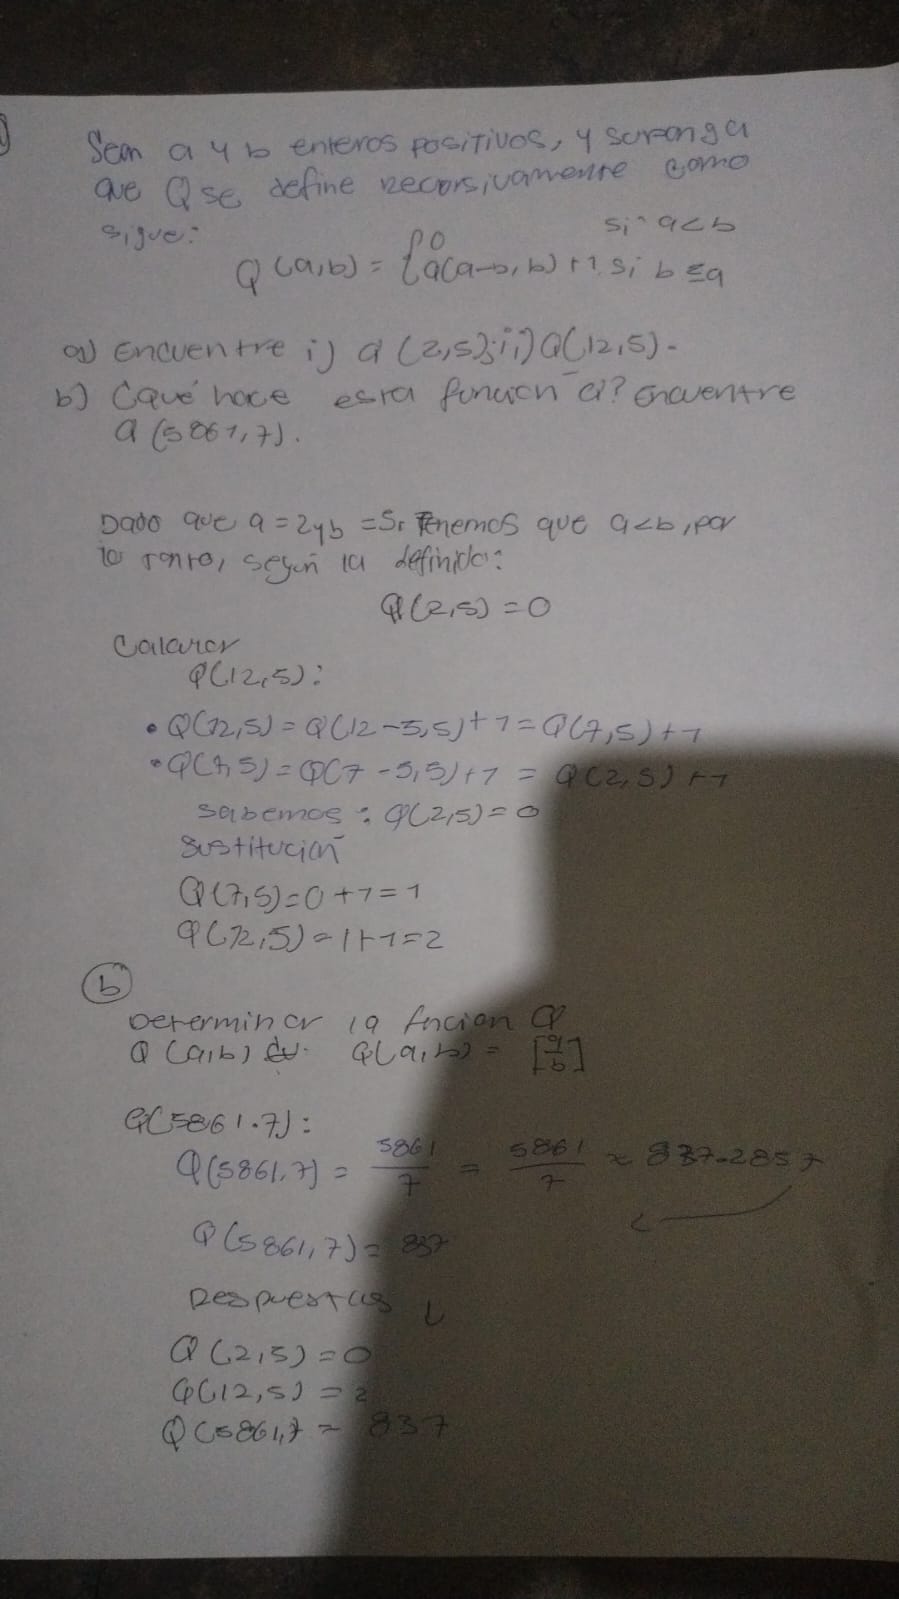 Sean a y b enteros positivos, y suponga
que Q se define recursivamente como
sigue:
si a<b
Q(a,b) = { 0
Q(a-b,b) +1 si b ≤ a
a) Encuentre i) Q (2,5); ii) Q(12,5).
b) ¿qué hace esta función Q? Encuentre
Q (5861,7).
Dado que a=2 y b =5, Tenemos que a<b, por
lo tanto, según la definido:
Q(2,5) = 0
Calcular
Q(12,5):
• Q(12,5) = Q(12-5,5)+1 = Q(7,5)+1
• Q(7,5) = Q(7-5,5)+1 = Q(2,5)+1
sabemos: Q(2,5)=0
sustitución
Q(7,5)=0+1=1
Q(12,5)=1+1=2
b
Determinar la fncion Q
Q (a,b) Q(a,b) = [a/b]
Q(5861.7):
Q(5861,7) = 5861/7 = 5861/7 ≈ 837.2857
Q(5861,7) = 837
Respuestas
Q(2,5)=0
Q(12,5) = 2
Q(5861,7 = 837